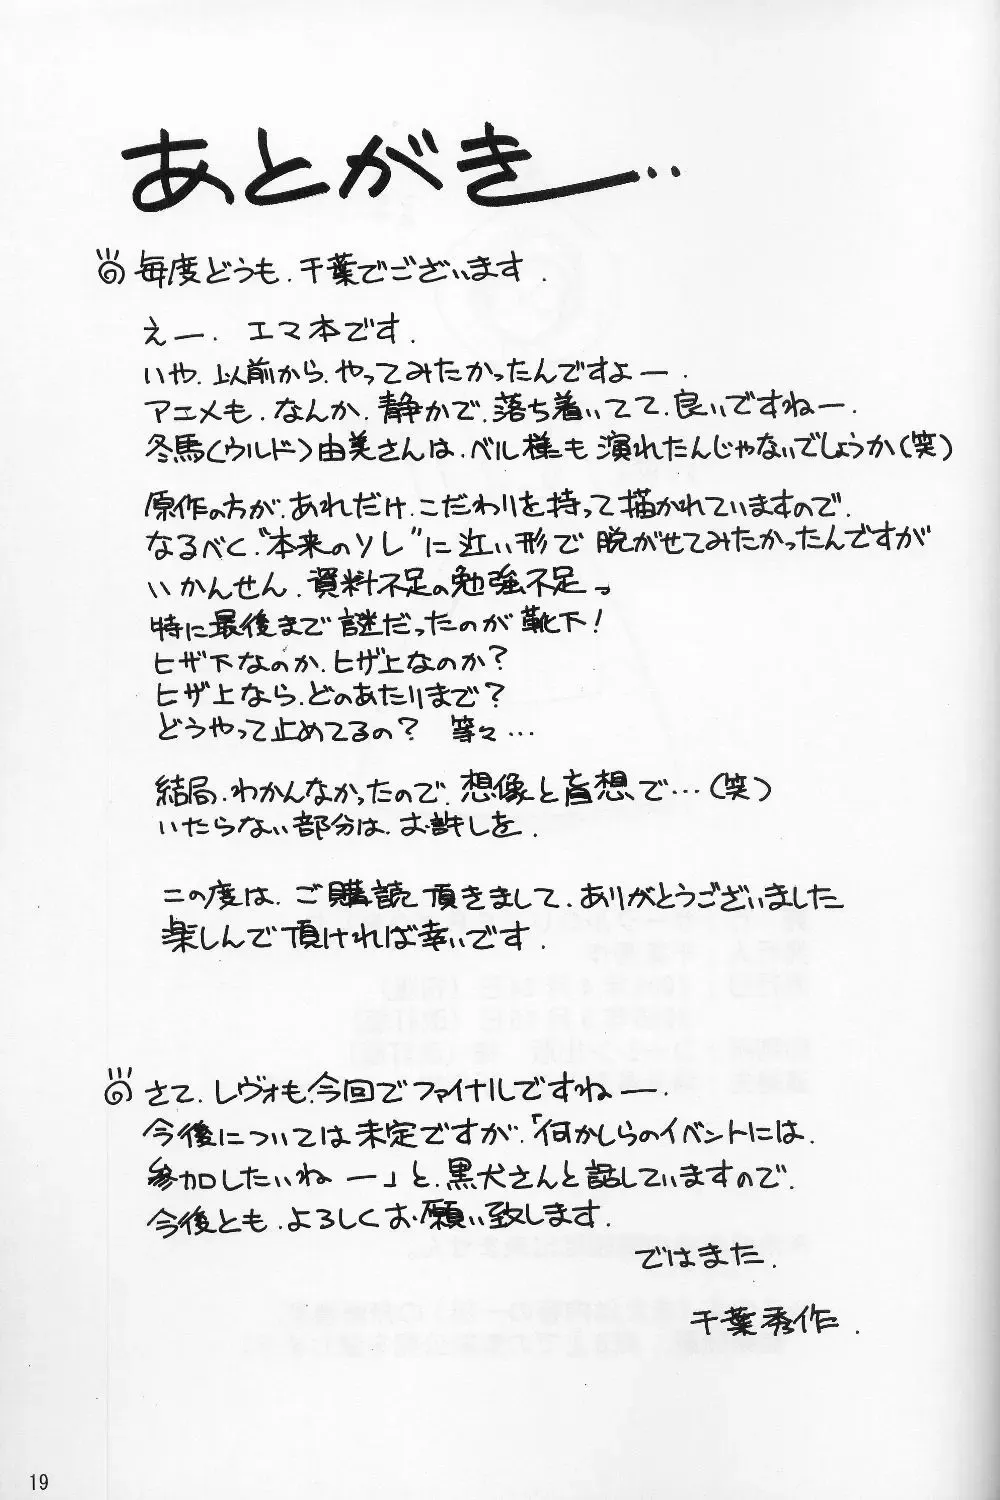 あとがき―‥
毎度どうも、千葉でございます.
えー、エマ本です.
いや、以前から、やってみたかったんですよー.
アニメも、なんか、静かで、落ち着いてて、良いですねー.
冬馬(ウルド)由美さんは、ベル様も演れたんじゃないでしょうか(笑)
原作の方が、あれだけ、こだわりを持って描かれていますので、
なるべく“本来のソレ”に近い形で脱がせてみたかったんですが
いかんせん、資料不足の勉強不足っ
特に最後まで謎だったのが靴下!
ヒザ下なのか、ヒザ上なのか?
ヒザ上なら、どのあたりまで?
どうやって止めてるの? 等々…
結局、わかんなかったので、想像と盲想で…(笑)
いたらない部分は、お許しを.
この度は、ご購読頂きまして、ありがとうございました
楽しんで頂ければ幸いです.
さて、レヴォも、今回でファイナルですねー.
今後については未定ですが、「何かしらのイベントには、
参加したいねー」と、黒犬さんと話していますので、
今後とも、よろしくお願い致します.
ではまた.
千葉秀作.
19